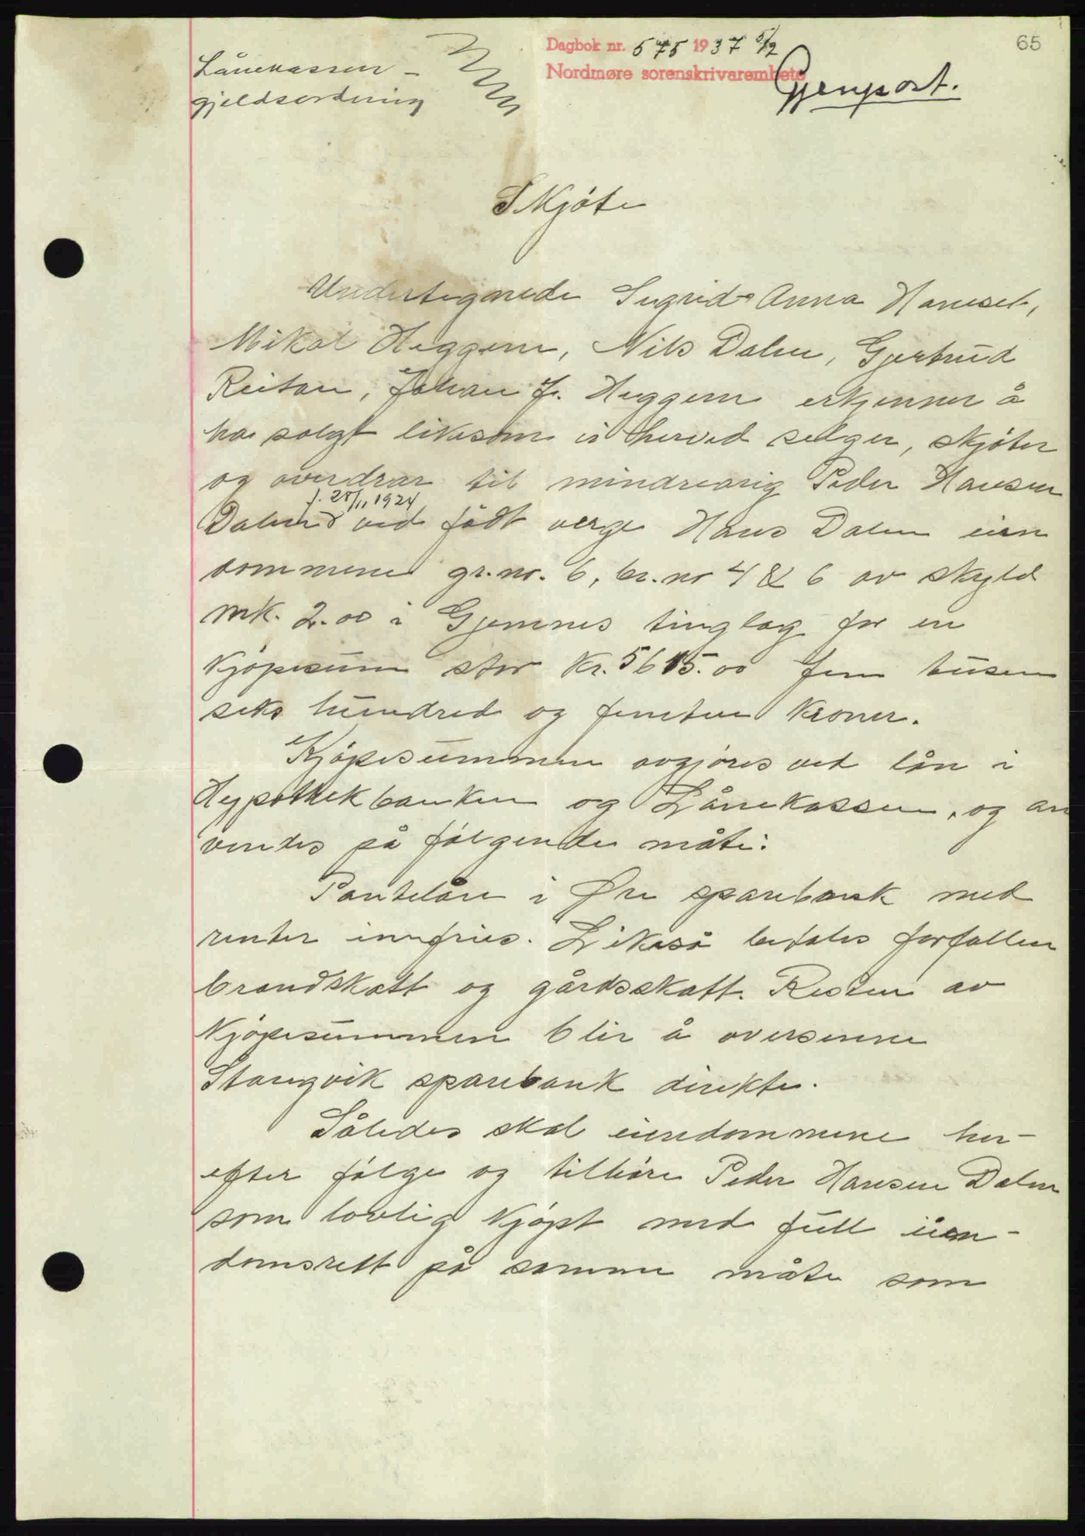 65
Dagbok nr. 575 1937 5/2
Nordmøre sorenskrivarembete
Gjenpart.
Lånekassen –
gjeldsordning
Skjøte
Undertegnede Sigrid Anna Hanset,
Mikal Heggem, Nils Dalen, Gjertrud
Reitan, Johan J. Heggem erkjenner å
ha solgt liksom vi herved selger, skjøter
og overdrar til mindreårig Peder Hansen
f. 28/11 1924
Dalen ved født verge Hans Dalen eien
dommene gr.nr. 6, br.nr 4 & 6 av skyld
mk. 2.00 i Gjemnes tinglag for en
kjøpesum stor kr. 5615.00 fem tusen
seks hundred og femten kroner.
Kjøpesummen avgjøres ved lån i
Hypothekbanken og Lånekassen, og an
vendes på følgende måte:
Pantelån i Øre sparebank med
renter innfries. Likeså betales forfallen
brandskatt og gårdsskatt. Resten av
kjøpesummen blir å oversenne
Stangvik sparebank direkte.
Således skal eiendommene her-
efter følge og tilhøre Peder Hansen Dalen
som lovlig kjøpt med full eien-
domsrett på samme måte som